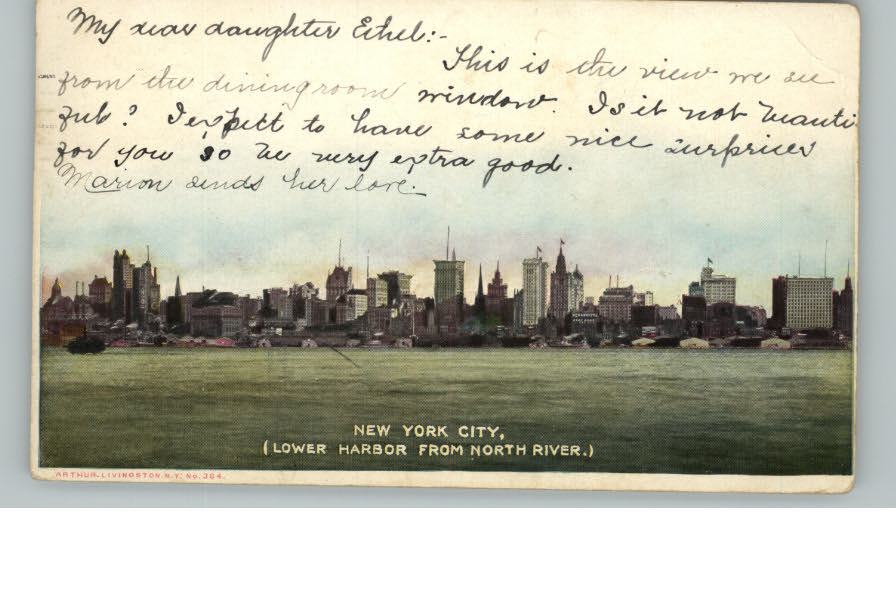 My dear daughter Ethel:-
This is the view we see
from the diningroom window. Is it not beauti-
ful? I expect to have some nice surprises
for you so be very extra good.
Marion sends her love.
NEW YORK CITY,
(LOWER HARBOR FROM NORTH RIVER.)
ARTHUR LIVINGSTON, N.Y. No. 364.